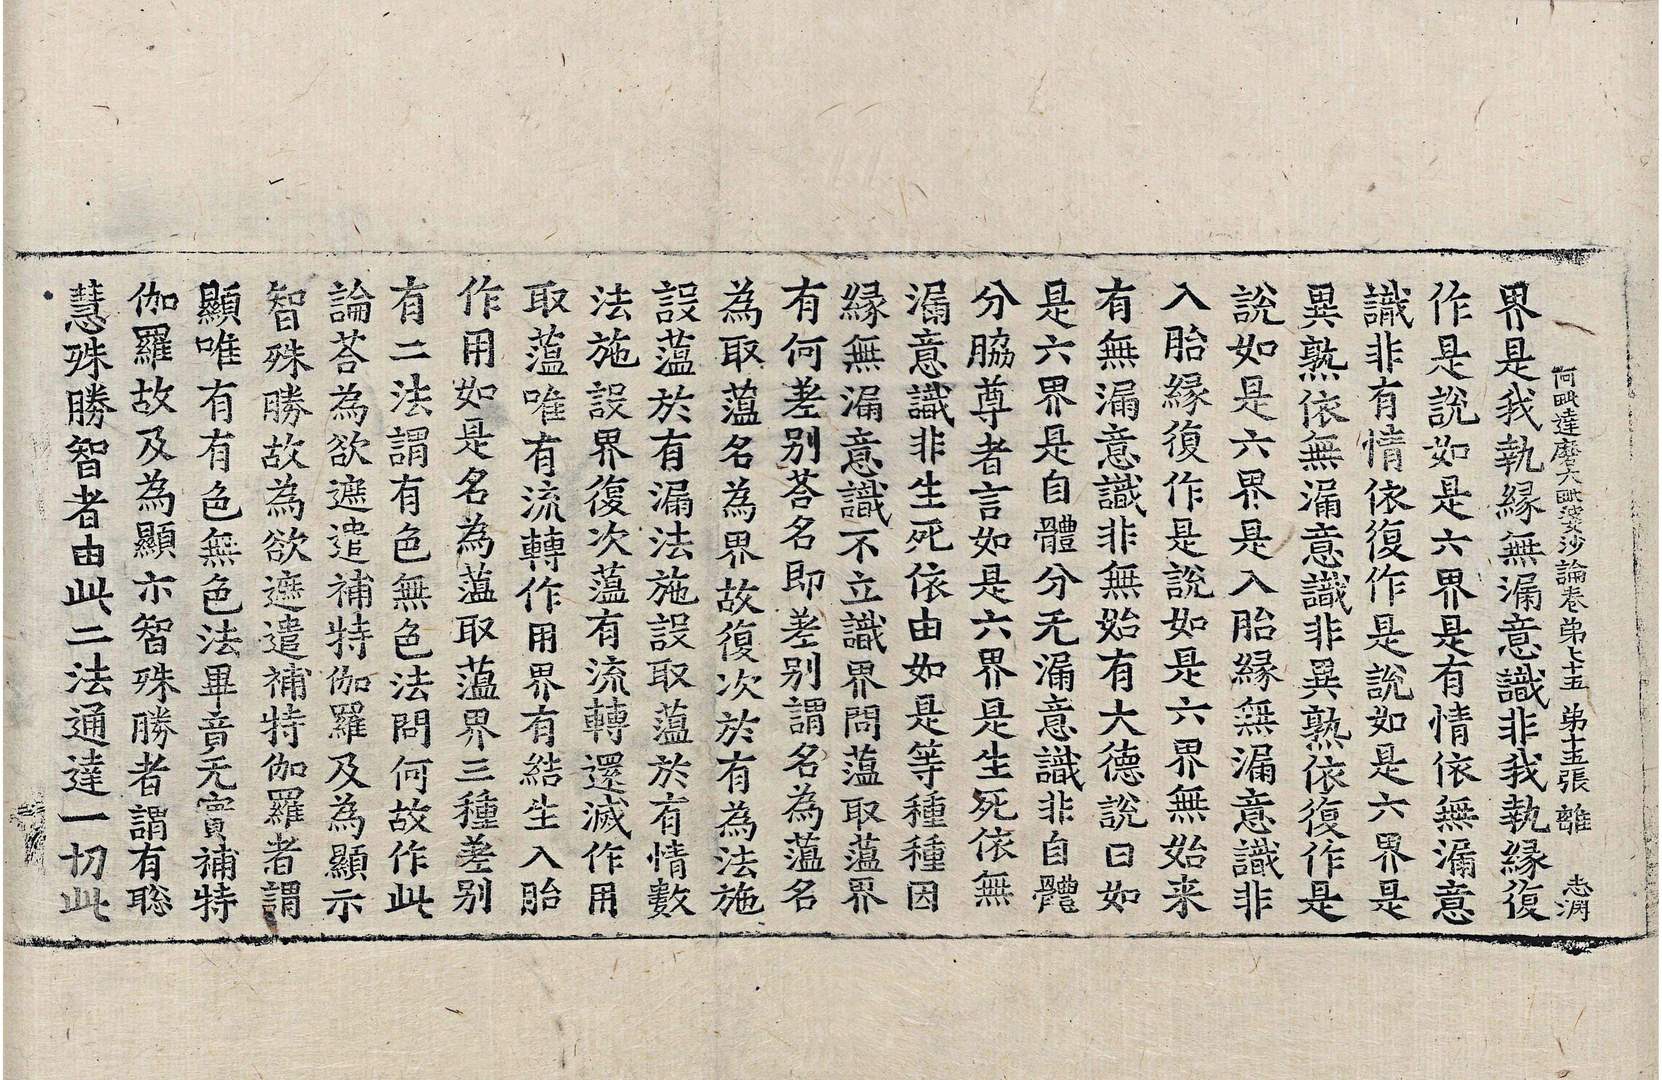 阿毗達磨大毗婆沙論卷第七十五 第十五張 離 志渕
界是我執緣無漏意識非我執緣復
作是說如是六界是有情依無漏意
識非有情依復作是說如是六界是
異熟依無漏意識非異熟依復作是
說如是六界是入胎緣無漏意識非
入胎緣復作是說如是六界無始来
有無漏意識非無始有大德說曰如
是六界是自體分无漏意識非自體
分脇尊者言如是六界是生死依無
漏意識非生死依由如是等種種因
緣無漏意識不立識界問蘊取蘊界
有何差別荅名即差別謂名為蘊名
為取蘊名為界故復次於有為法施
設蘊於有漏法施設取蘊於有情數
法施設界復次蘊有流轉還滅作用
取蘊唯有流轉作用界有結生入胎
作用如是名為蘊取蘊界三種差別
有二法謂有色無色法問何故作此
論荅為欲遮遣補特伽羅及為顯示
智殊勝故為欲遮遣補特伽羅者謂
顯唯有有色無色法畢竟无實補特
伽羅故及為顯示智殊勝者謂有聡
慧殊勝智者由此二法通達一切此